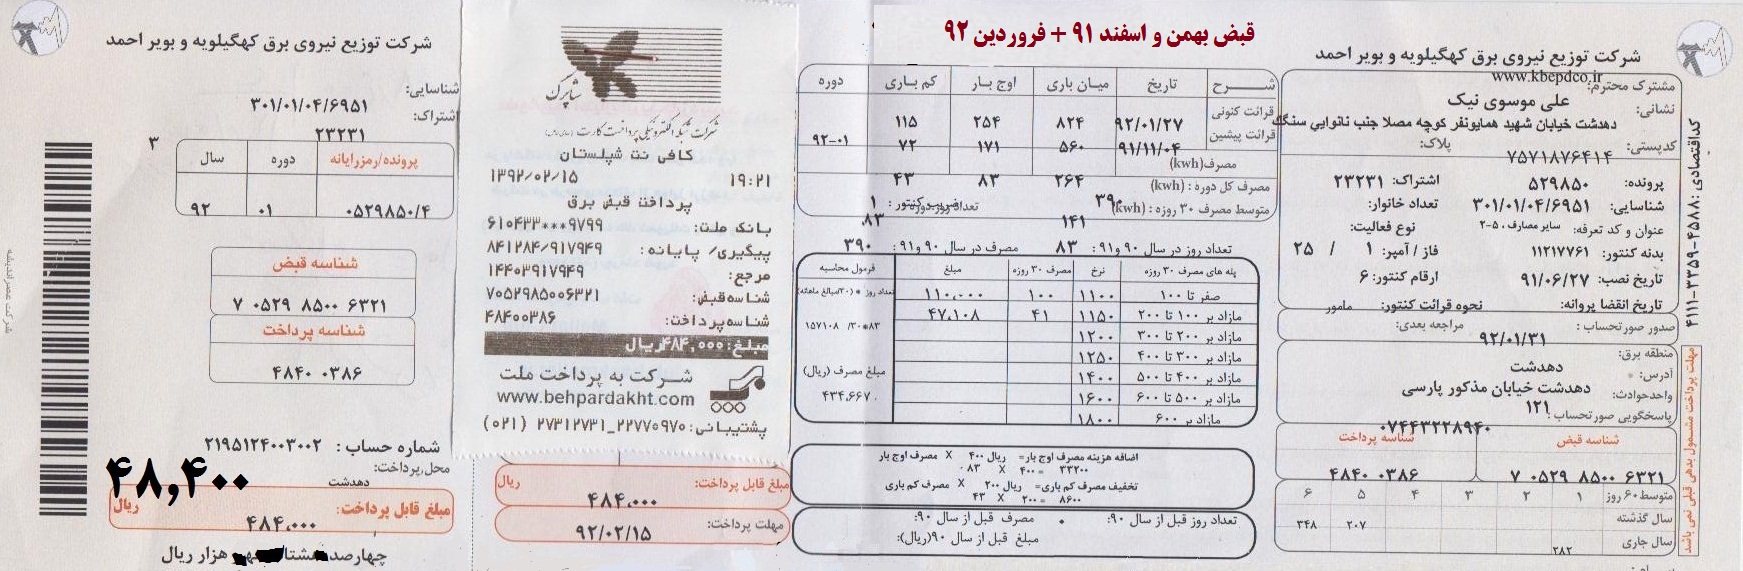 قبض بهمن و اسفند ۹۱ + فروردین ۹۲
شرکت توزیع نیروی برق کهگیلویه و بویر احمد
www.kbepdco.ir
مشترک محترم:
علی موسوی نیک
نشانی:
دهدشت خیابان شهید همایونفر کوچه مصلا جنب نانوایی سنگک
کدپستی: ۷۵۷۱۸۷۶۴۱۴ پلاک:
پرونده: ۵۲۹۸۵۰ اشتراک: ۲۳۲۳۱
شناسایی: ۳۰۱/۰۱/۰۴/۶۹۵۱ تعداد خانوار:
عنوان و کد تعرفه: سایر مصارف، ۵-۲ نوع فعالیت:
بدنه کنتور: ۱۱۲۱۷۷۶۱ فاز / آمپر: ۱ / ۲۵
تاریخ نصب: ۹۱/۰۶/۲۷ ارقام کنتور: ۶
تاریخ انقضا پروانه: نحوه قرائت کنتور: مامور
صدور صورتحساب: ۹۲/۰۱/۳۱ مراجعه بعدی:
منطقه برق: دهدشت
آدرس: دهدشت خیابان مذکور پارسی
واحدحوادث: ۱۲۱
پاسخگویی صورتحساب: ۰۷۴۴۳۲۲۸۹۴۰
شناسه قبض شناسه پرداخت
۷ ۰۵۲۹ ۸۵۰۰ ۶۳۲۱ ۴۸۴۰ ۰۳۸۶
متوسط ۶۰ روز ۱ ۲ ۳ ۴ ۵ ۶
سال گذشته ۲۰۷ ۳۴۸
سال جاری ۲۸۲
کداقتصادی: ۴۱۱۱-۳۳۵۹-۴۵۸۸
مهلت پرداخت مشمول بدهی قبلی نمی باشد
شرح تاریخ میان باری اوج بار کم باری دوره
قرائت کنونی ۹۲/۰۱/۲۷ ۸۲۴ ۲۵۴ ۱۱۵
قرائت پیشین ۹۱/۱۱/۰۴ ۵۶۰ ۱۷۱ ۷۲ ۹۲-۰۱
مصرف(kwh)
مصرف کل دوره: (kwh) ۲۶۴ ۸۳ ۴۳
متوسط مصرف ۳۰ روزه: (kwh) ۳۹۰ ضریب کنتور: ۱ تعداد روز دوره:
۱۴۱ ۸۳
تعداد روز در سال ۹۰ و ۹۱: ۸۳ مصرف در سال ۹۰ و ۹۱: ۳۹۰
پله های مصرف ۳۰ روزه نرخ مصرف ۳۰ روزه مبلغ فرمول محاسبه
صفر تا ۱۰۰ ۱۱۰۰ ۱۰۰ ۱۱۰,۰۰۰ تعداد روز * (۳۰/مبالغ ماهانه)
مازاد بر ۱۰۰ تا ۲۰۰ ۱۱۵۰ ۴۱ ۴۷,۱۰۸ ۸۳*۳۰/ ۱۵۷۱۰۸
مازاد بر ۲۰۰ تا ۳۰۰ ۱۲۰۰
مازاد بر ۳۰۰ تا ۴۰۰ ۱۲۵۰
مازاد بر ۴۰۰ تا ۵۰۰ ۱۴۰۰ مبلغ مصرف (ریال)
مازاد بر ۵۰۰ تا ۶۰۰ ۱۶۰۰ ۴۳۴,۶۶۷
مازاد بر ۶۰۰ ۱۸۰۰
اضافه هزینه مصرف اوج بار= ریال ۴۰۰ X مصرف اوج بار
۳۳۲۰۰ = ۴۰۰ X ۸۳
تخفیف مصرف کم باری= ریال ۲۰۰ X مصرف کم باری
۸۶۰۰ = ۲۰۰ X ۴۳
تعداد روز قبل از سال ۹۰: ۰ مصرف قبل از سال ۹۰:
مبلغ قبل از سال ۹۰(ریال):
شاپرک
شرکت شبکه الکترونیکی پرداخت کارت
کافی نت شپلستان
۱۳۹۲/۰۲/۱۵ ۱۹:۲۱
پرداخت قبض برق
بانک ملت: ۶۱۰۴۳۳***۹۷۹۹
پیگیری/ پایانه: ۸۴۱۲۸۴/۹۱۷۹۴۹
مرجع: ۱۴۴۰۳۹۱۷۹۴۹
شناسه قبض: ۷۰۵۲۹۸۵۰۰۶۳۲۱
شناسه پرداخت: ۴۸۴۰۰۳۸۶
مبلغ: ۴۸۴,۰۰۰ریال
شرکت به پرداخت ملت
www.behpardakht.com
پشتیبانی: ۲۲۷۷۰۹۷۰_۲۷۳۱۲۷۳۱ (۰۲۱)
مبلغ قابل پرداخت: ۴۸۴,۰۰۰ ریال
مهلت پرداخت: ۹۲/۰۲/۱۵
شرکت توزیع نیروی برق کهگیلویه و بویر احمد
شناسایی: ۳۰۱/۰۱/۰۴/۶۹۵۱
اشتراک: ۲۳۲۳۱
۳
پرونده/رمزرایانه دوره سال
۰۵۲۹۸۵۰/۴ ۰۱ ۹۲
شناسه قبض
۷ ۰۵۲۹ ۸۵۰۰ ۶۳۲۱
شناسه پرداخت
۴۸۴۰ ۰۳۸۶
شماره حساب: ۲۱۹۵۱۲۴۰۰۳۰۰۲
محل پرداخت: دهدشت
۴۸,۴۰۰
مبلغ قابل پرداخت: ۴۸۴,۰۰۰ ریال
چهارصد هزار ریال
شرکت عصراندیشه